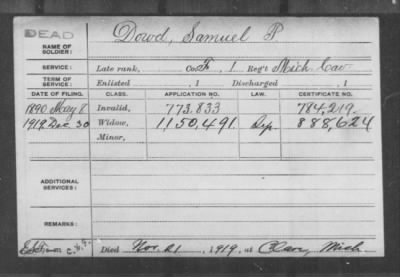 DEAD
NAME OF SOLDIER: Dowd, Samuel P
SERVICE: Late rank, Co. F, 1 Reg't Mich Cav
TERM OF SERVICE: Enlisted , 1 Discharged , 1
DATE OF FILING. CLASS. APPLICATION NO. LAW. CERTIFICATE NO.
1890 May 8 Invalid, 773.833 784,219
1919 Dec 30 Widow, 1,150,491 888,624
Minor,
ADDITIONAL SERVICES:
REMARKS:
Died Nov. 21, 1919, at Clare, Mich